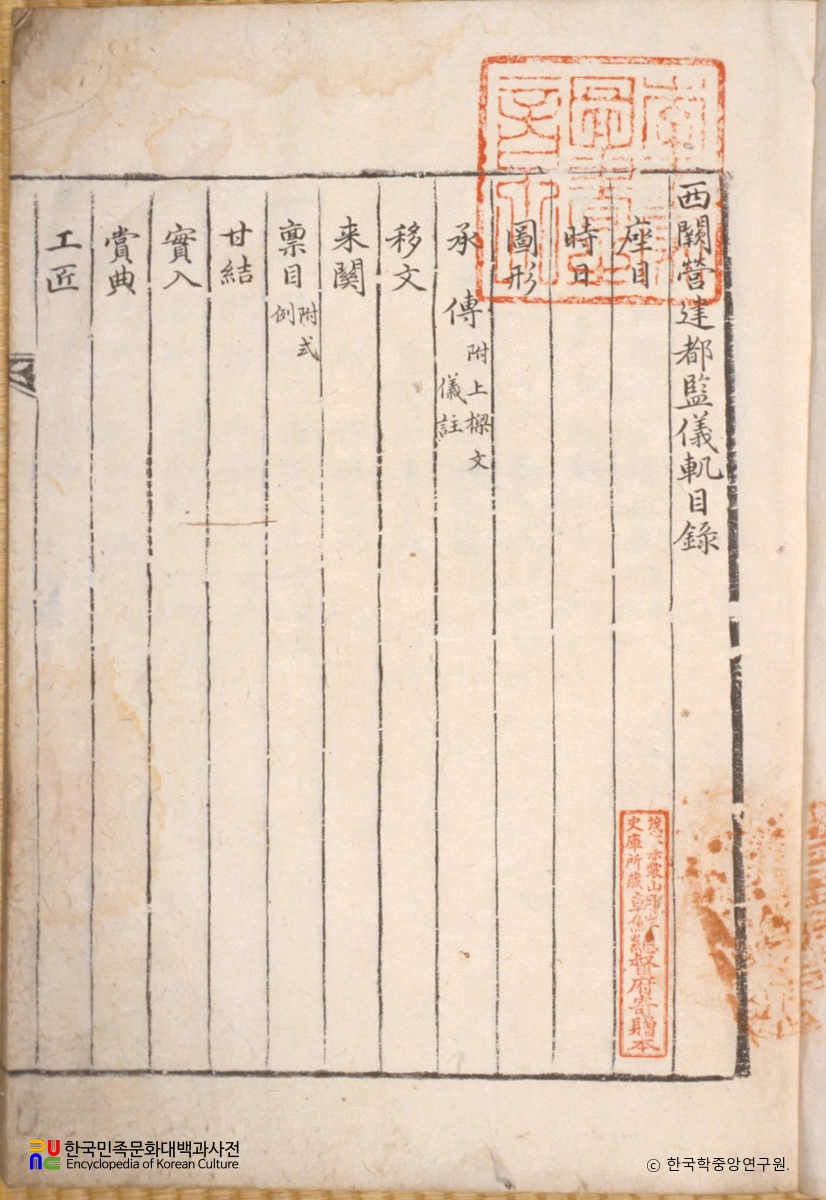 西闕營建都監儀軌目錄
座目
時日
圖形
承傳 附上樑文 儀註
移文
来關
稟目 附式 例
甘結
實入
賞典
工匠
史庫所藏
朝鮮總督府寄贈本
한국민족문화대백과사전
Encyclopedia of Korean Culture
© 한국학중앙연구원.